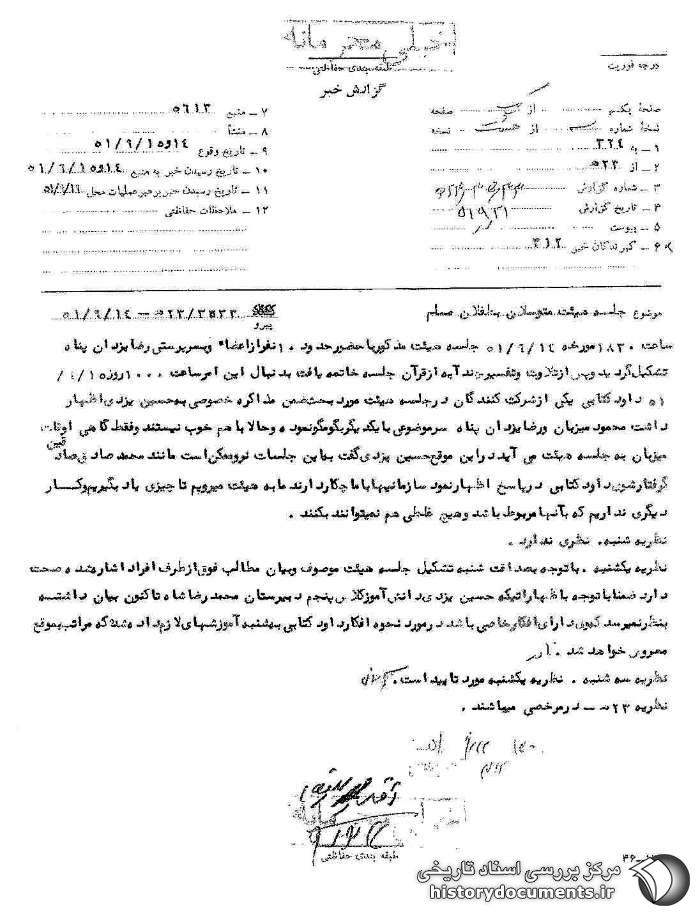 خیلی محرمانه
طبقه بندی حفاظتی
گزارش خبر
درجه فوریت
صفحه یکم از صفحه
نسخهٔ شماره از هشت نسخه
۱ ـ به ۳۲۴
۲ ـ از ۵۲۳
۳ ـ شماره گزارش
۴ ـ تاریخ گزارش
۵ ـ پیوست
۶ ـ گیرندگان خبر ۳۱۲
۷ ـ منبع ۵۶۱۳
۸ ـ منشأ
۹ ـ تاریخ وقوع ۱۴و۵۱/۶/۱۵
۱۰ ـ تاریخ رسیدن خبر به منبع ۱۴و۵۱/۶/۱۵
۱۱ ـ تاریخ رسیدن خبر برهبر عملیات محل
۱۲ ـ ملاحظات حفاظتی
موضوع جلسه هیئت متوسلان بطفلان مسلم
پیرو ۵۲۳/۳۵۳۳ ـ ۵۱/۶/۱۴
ساعت ۱۸۳۰ مورخه ۵۱/۶/۱۴ جلسه هیئت مذکور با حضور حدود ۱۰ نفر از اعضاء و بسرپرستی رضا یزدان پناه
تشکیل گردید و پس از تلاوت و تفسیر چند آیه از قرآن جلسه خاتمه یافت بدنبال این امر ساعت ۱۰۰۰ روز ۱۵/۶/
۵۱ داود کتابی یکی از شرکت کنندگان در جلسه هیئت مورد بحث ضمن مذاکره خصوصی به حسین یزدی اظهار
داشت محمود میزبان و رضا یزدان پناه سر موضوعی با یکدیگر بگو مگو نموده و حالا با هم خوب نیستند و فقط گاهی اوقات
میزبان به جلسه هیئت می آید در این موقع حسین یزدی گفت به این جلسات نرو ممکن است مانند محمد صادق صادقین
گرفتار شوی داود کتابی در پاسخ اظهار نمود سازمانیها با ما چکار دارند ما به هیئت میرویم تا چیزی یاد بگیریم و کار
دیگری نداریم که بآنها مربوط باشد و هیچ غلطی هم نمیتوانند بکنند .
نظریه شنبه. نظری ندارد .
نظریه یکشنبه . با توجه بصداقت شنبه تشکیل جلسه هیئت موصوف و بیان مطالب فوق از طرف افراد اشاره شده صحت
دارد ضمنا با توجه باظهاراتیکه حسین یزدی دانش آموز کلاس پنجم دبیرستان محمد رضا شاه تاکنون بیان داشته
بنظر نمیرسد که وی دارای افکار خاصی باشد در مورد نحوه افکار داود کتابی بشنبه آموزشهای لازم داده شد که مراتب بموقع
معروض خواهد شد .
نظریه سه شنبه . نظریه یکشنبه مورد تایید است.
نظریه ۵۲۳ ـ در مرخصی میباشند .
خیلی محرمانه
طبقه بندی حفاظتی
مرکز بررسی اسناد تاریخی
historydocuments.ir